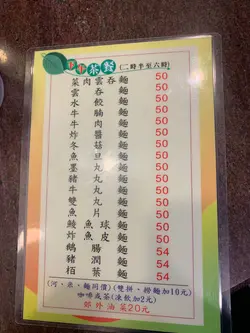 茶餐 (二時半至六時)
菜肉雲吞麵 50
雲吞麵 50
水餃麵 50
牛腩麵 50
牛肉麵 50
炸醬麵 50
冬菇麵 50
魚旦麵 50
墨丸麵 50
豬丸麵 50
牛丸麵 50
雙丸麵 50
魚片麵 50
鯪魚球麵 50
炸魚皮麵 50
鵝腸麵 54
豬潤麵 54
栢葉麵 54
(河、米、麵同價)(雙拼、撈麵加10元)
咖啡或茶(凍飲加2元)
郊外油菜20元